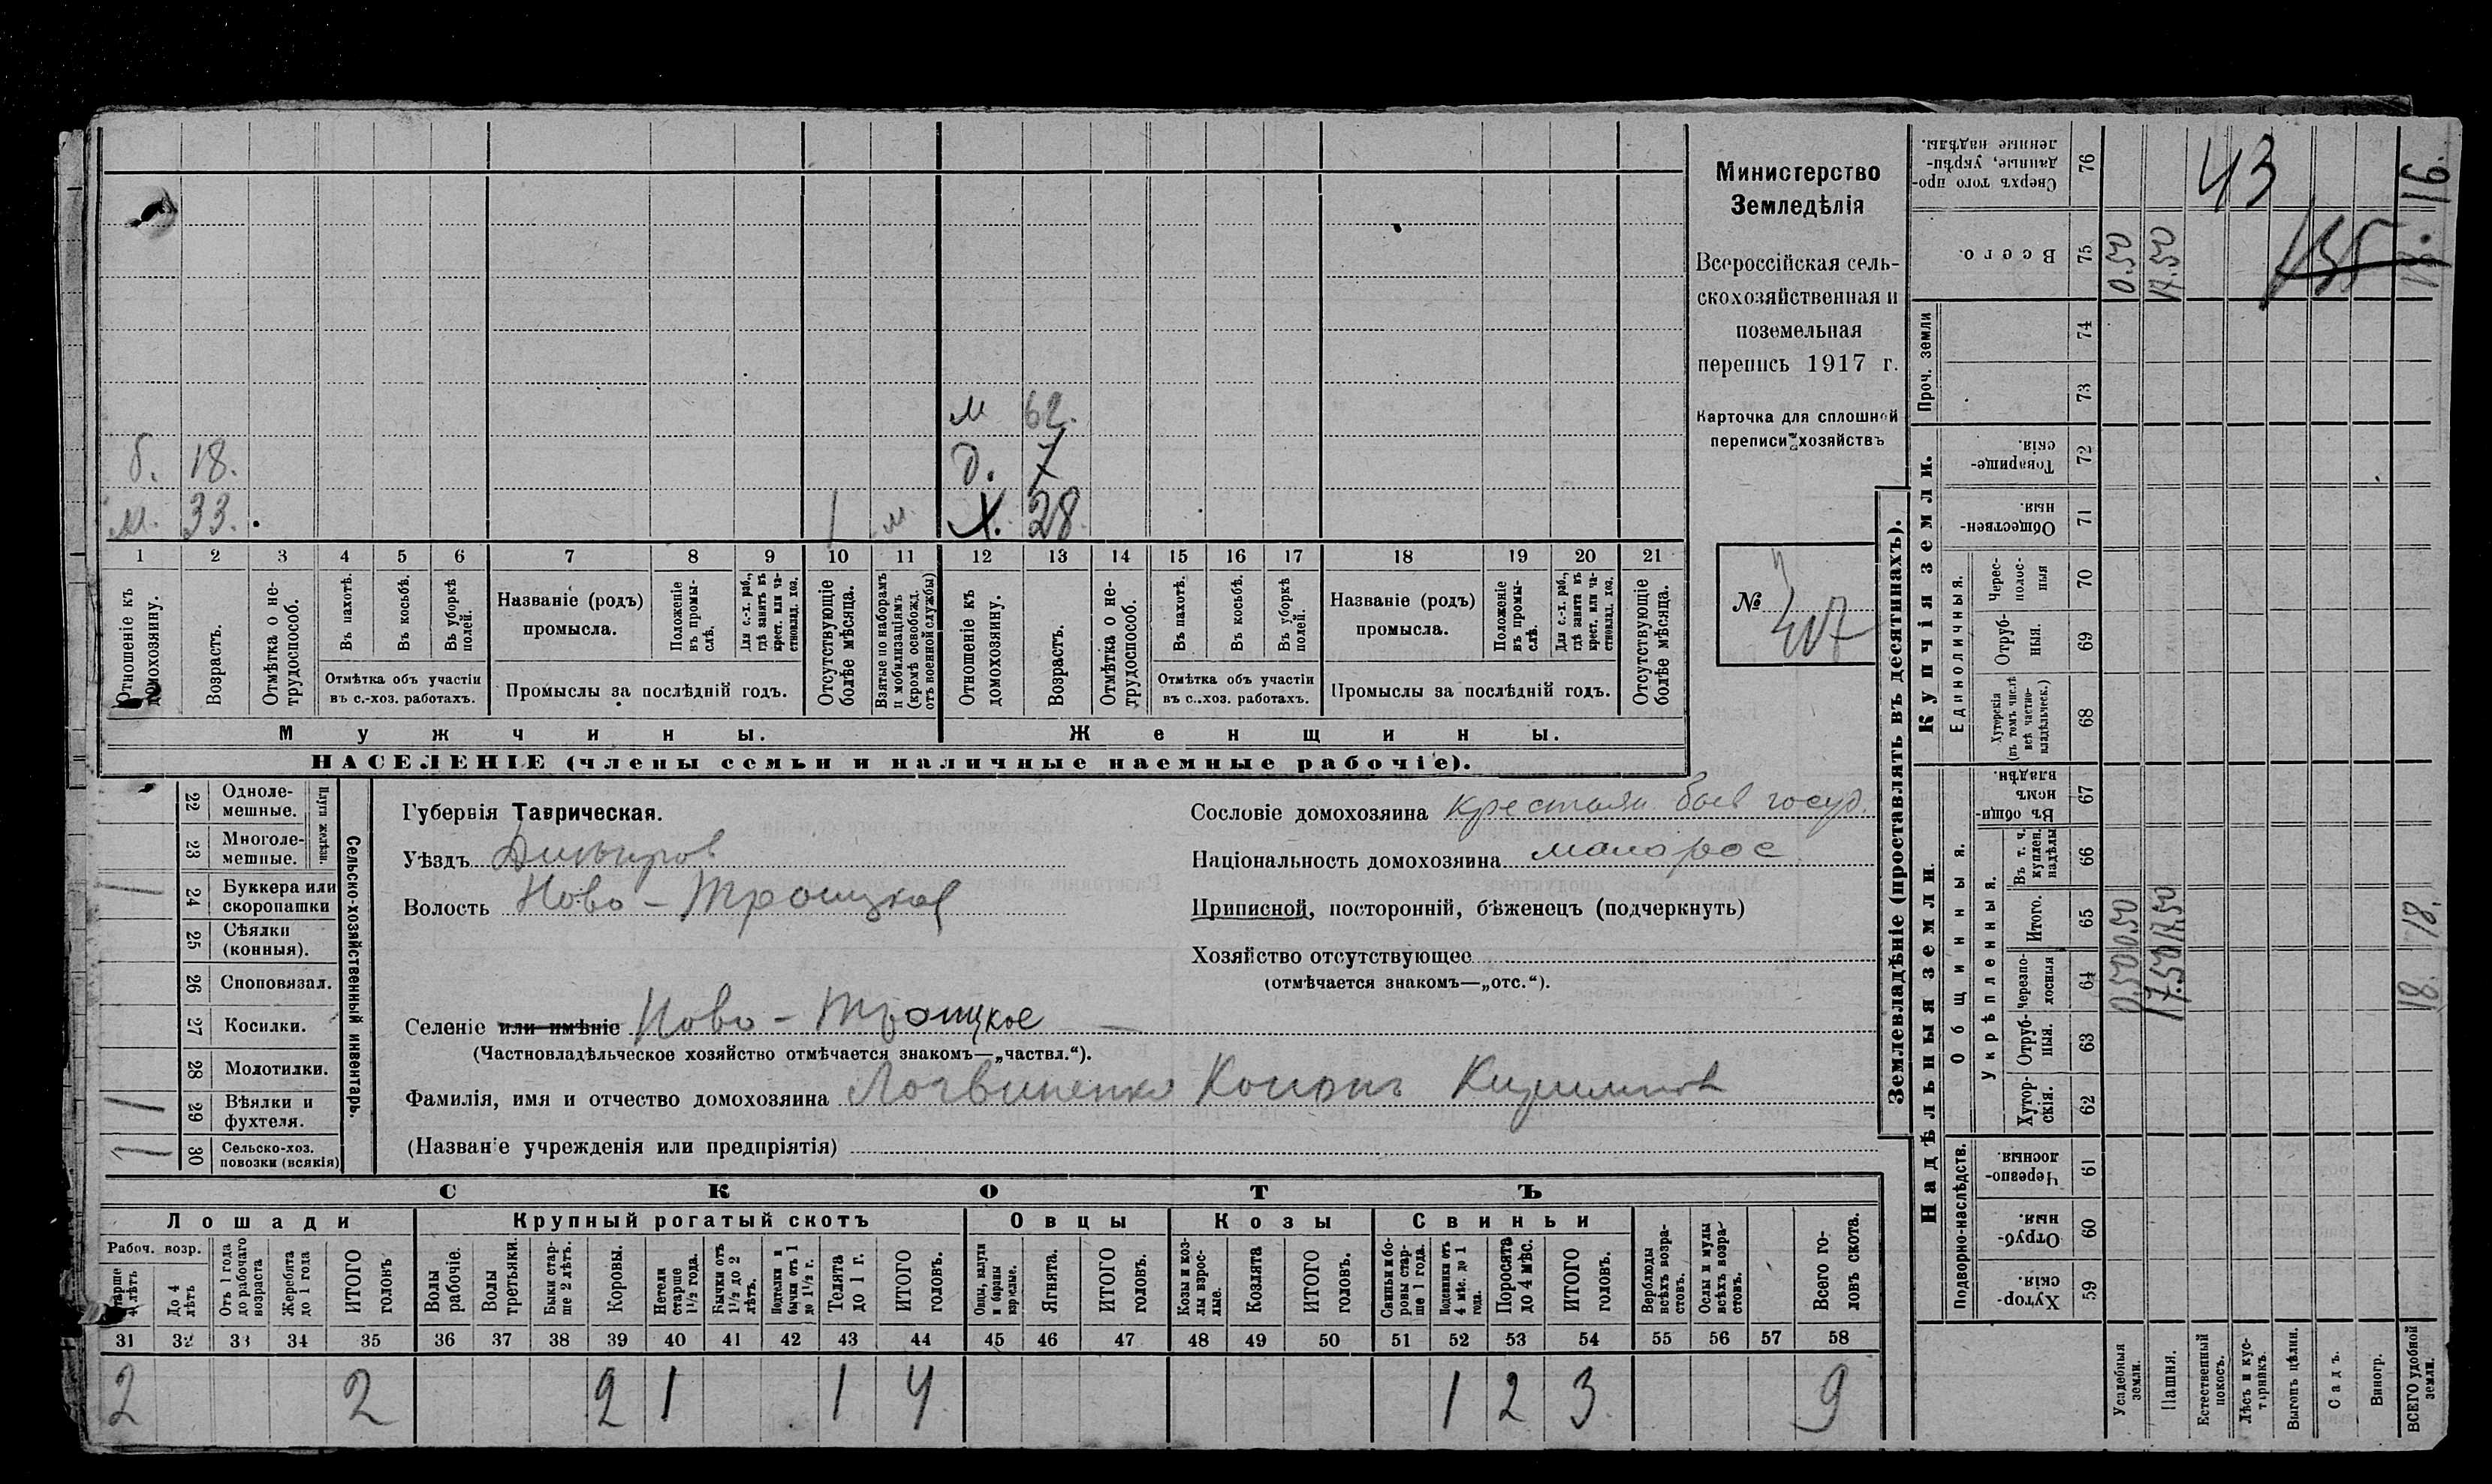 м 62.
б. 18. д. 7
м. 33. 1 м. Х. 28
1 2 3 4 5 6 7 8 9 10 11 12 13 14 15 16 17 18 19 20 21
Отношеніе къ домохозяину.
Возрастъ.
Отмѣтка о не-
трудоспособ.
Въ пахотѣ.
Въ косьбѣ.
Въ уборкѣ
полей.
Отмѣтка объ участіи
въ с.-хоз. работахъ.
Названіе (родъ)
промысла.
Положеніе
въ промы-
слѣ.
Для с.-х. раб.,
гдѣ занятъ въ
крест. или ча-
стновлад. хоз.
Промыслы за послѣдній годъ.
Отсутствующіе
болѣе мѣсяца.
Взятые по наборамъ
и мобилизаціямъ
(кромѣ освобожд.
отъ военной службы)
Отношеніе къ
домохозяину.
Возрастъ.
Отмѣтка о не-
трудоспособ.
Въ пахотѣ.
Въ косьбѣ.
Въ уборкѣ
полей.
Отмѣтка объ участіи
въ с.-хоз. работахъ.
Названіе (родъ)
промысла.
Положеніе
въ промы-
слѣ.
Для с.-х. раб.,
гдѣ занята въ
крест. или ча-
стновлад. хоз.
Промыслы за послѣдній годъ.
Отсутствующіе
болѣе мѣсяца.
Мужчины. Женщины.
НАСЕЛЕНІЕ (члены семьи и наличные наемные рабочіе).
Министерство
Земледѣлія
Всероссійская сель-
скохозяйственная и
поземельная
перепись 1917 г.
Карточка для сплошной
переписи хозяйствъ
№
Сельско-хозяйственный инвентарь.
Плуги желѣзн.
22 Одноле-
мешные.
23 Многоле-
мешные.
1 24 Буккера или
скоропашки
25 Сѣялки
(конныя).
26 Сноповязал.
27 Косилки.
28 Молотилки.
1 29 Вѣялки и
фухтеля.
1 30 Сельско-хоз.
повозки (всякія)
Губернія Таврическая.
Уѣздъ Днѣпров
Волость Ново-Троицкая
Селеніе или имѣніе Ново-Троицкое
(Частновладѣльческое хозяйство отмѣчается знакомъ—„частвл.“).
Фамилія, имя и отчество домохозяина Логвиненко
(Названіе учрежденія или предпріятія)
Сословіе домохозяина крестьян. быв госуд.
Національность домохозяина малорос
Приписной, посторонній, бѣженецъ (подчеркнуть)
Хозяйство отсутствующее
(отмѣчается знакомъ—„отс.“).
СКОТЪ
Лошади Крупный рогатый скотъ Овцы Козы Свиньи
Рабоч. возр.
Старше
4 лѣтъ
До 4
лѣтъ
Отъ 1 года
до рабочаго
возраста
Жеребята
до 1 года
ИТОГО
головъ
Волы
рабочіе.
Волы
третьяки.
Быки стар-
ше 2 лѣтъ.
Коровы.
Нетели
старше
1½ года.
Бычки отъ
1½ до 2
лѣтъ.
Подтелки и
бычки отъ 1
до 1½ г.
Телята
до 1 г.
ИТОГО
головъ.
Овцы, валухи
и бараны
взрослые.
Ягнята.
ИТОГО
головъ.
Козы и коз-
лы взрос-
лые.
Козлята
ИТОГО
головъ.
Свиньи и бо-
ровы стар-
ше 1 года.
Подсвинки отъ
4 мѣс. до 1
года.
Поросята
до 4 мѣс.
ИТОГО
головъ.
Верблюды
всѣхъ возра-
стовъ.
Ослы и мулы
всѣхъ возра-
стовъ.
Всего го-
ловъ скота.
31 32 33 34 35 36 37 38 39 40 41 42 43 44 45 46 47 48 49 50 51 52 53 54 55 56 57 58
2 2 2 1 1 4 1 2 3 9
Землевладѣніе (проставлять въ десятинахъ).
Надѣльныя земли. Купчія земли. Проч. земли
Подворно-наслѣдств. Общинныя. Единоличныя.
Укрѣпленныя.
Хутор-
скія. 59
Отруб-
ныя. 60
Черезпо-
лосныя 61
Хутор-
скія. 62
Отруб-
ныя. 63
Черезпо-
лосныя 64 0.50 17.50 18.
Итого. 65 0.50 17.50 18.
Въ т. ч.
куплен.
надѣлы 66
Въ общин-
номъ
владѣн. 67
Хуторскія
(въ томъ числѣ
всѣ частно-
владѣльческ.) 68
Отруб-
ныя. 69
Черес-
полос-
ныя 70
Обществен-
ныя. 71
Товарище-
скія. 72
73
74
Всего. 75 0.50 17.50 18.
Сверхъ того про-
данные, укрѣп-
ленные надѣлы. 76 16.
43
Усадебныя
земли.
Пашня.
Естественный
покосъ.
Лѣсъ и кус-
тарникъ.
Выгонъ цѣлин.
Садъ.
Виногр.
ВСЕГО удобной
земли.